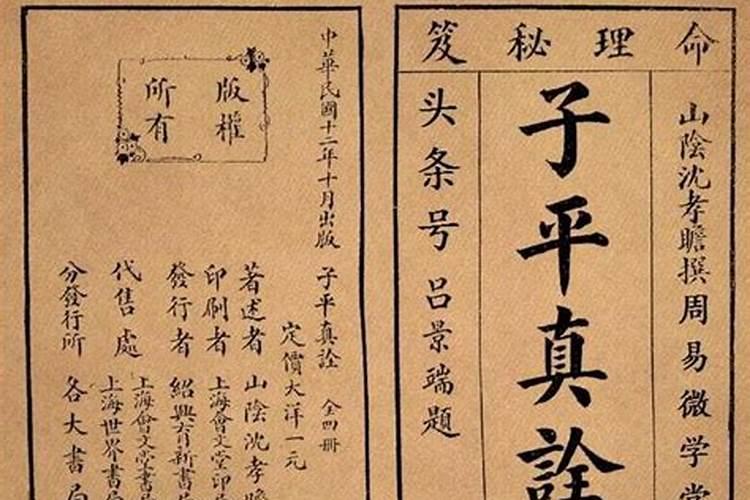 命理秘笈
山陰沈孝瞻撰周易微学堂
子平真詮
头条号呂景端題
中華民國十二年十月出版
版權
所有
子平真詮 全四冊
定價大洋一元
著述者 山陰沈孝瞻
印刷者 上海會文堂印
發行者 紹興育新書局
代售處 上海會文堂書局
上海世界書局
分發行所 各大書局